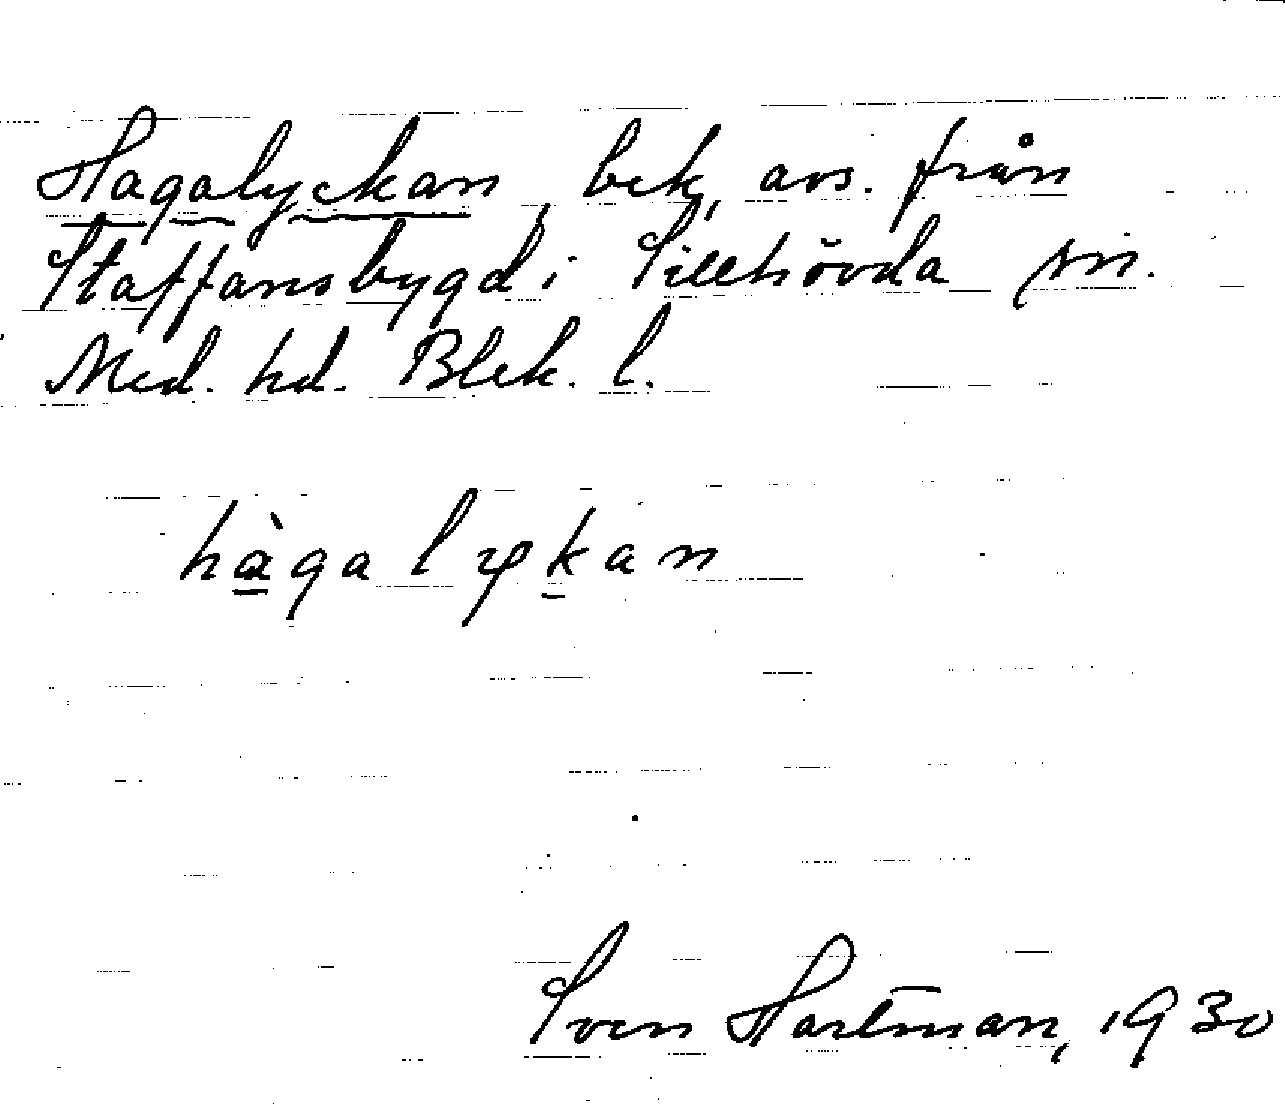 Hagalyckan, bek, avs. från
Staffansbygd i Sillhövda sn.
Med. hd. Blek. l.
hàgalyckan
Sven Hartman, 1930